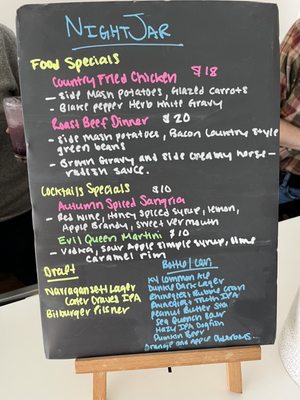 NIGHTJAR
Food Specials
Country Fried Chicken $18
- side Mash potatoes, Glazed Carrots
- Blake pepper Herb White Gravy
Roast Beef Dinner $20
- side mash potatoes, Bacon Country Style
green beans
- Brown Gravy and side creamy horse-
radish sauce.
Cocktails Specials $10
Autumn Spiced Sangria
- Red Wine, Honey Spiced syrup, lemon,
Apple Brandy, Sweet Vermouth
Evil Queen Martini $10
- Vodka, Sour Apple Simple syrup, lime
caramel rim
Draft
Narragansett Lager
Cater Craves IPA
Bitburger Pilsner
Bottle/Can
KY Common Ale
Dunkel Dark Lager
Rhinegeist Bubble
Rhinegeist Truth IPA
Peanut Butter
Sea Quench Sour
Hazy IPA Dogfish
Pumkin Beer
Orange and Apple